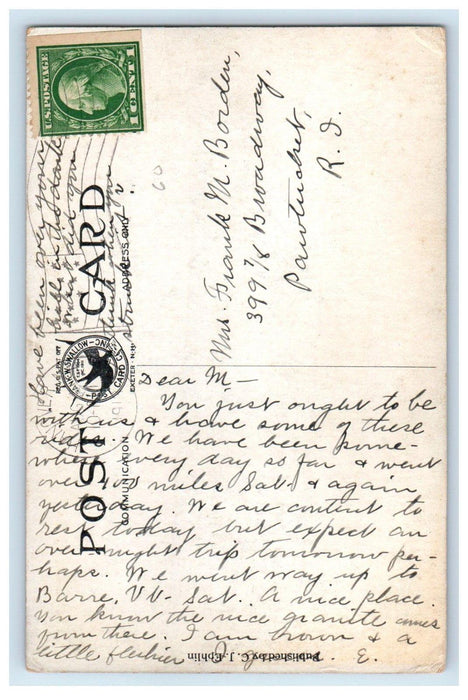 U.S. POSTAGE
1 CENT 1
POST CARD
ADDRESS ONLY
COMMUNICATION
SWALLOW
POST CARD
EXETER - N.H.
Mrs. Frank M. Borden,
399 7/8 Broadway,
Pawtucket,
R. I.
60
Dear M—
You just ought to be
with us & have some of these
rides. We have been some-
where every day so far & went
over 400 miles Sat. & again
yesterday. We are content to
rest today but expect an
over night trip tomorrow per-
haps. We went way up to
Barre, Vt. Sat. A nice place.
You know the nice granite comes
from there. I am brown & a
little fleshier
E.
Have been on your
think when you
Published by C. J. Ephlin